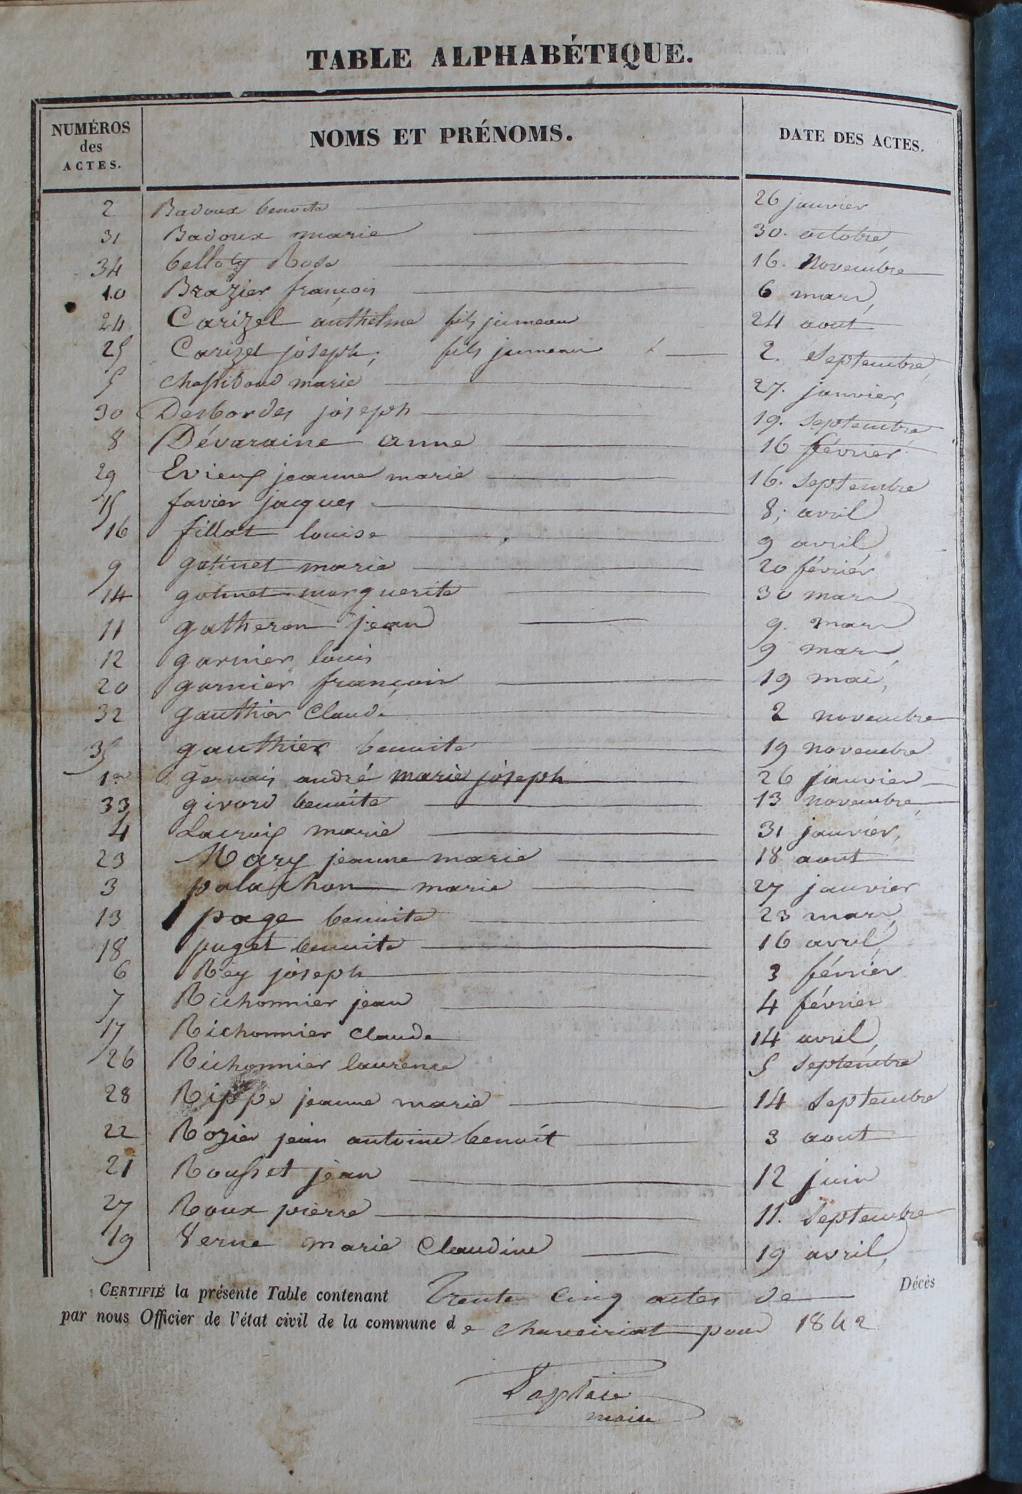 TABLE ALPHABÉTIQUE.
NUMÉROS des ACTES. NOMS ET PRÉNOMS. DATE DES ACTES.
2 Badoux benoite 26 janvier
31 Badoux marie 30. octobre
34 Rose 16. Novembre
10 Brazier françois 6 mars
24 Carizel anthelme fils jumeau 24 aout
25 Carizel joseph, fils jumeau 2. Septembre
5 marie 27. janvier,
30 Desbordes joseph 19. Septembre
8 Dévaraine anne 16 février
29 Evieux jeanne marie 16. Septembre
15 favier jacques 8, avril
16 fillat louise 9 avril
9 gotinet marie 20 février
14 gotinet marguerite 30 mars
11 gatheron jean 9. mars
12 garnier louis 9 mars
20 garnier françois 19 mai,
32 gauthier Claude 2 novembre
35 gauthier benoite 19 novembre
1er gervais andré marie joseph 26 janvier
33 givord benoite 13 novembre
4 Lacroix marie 31 janvier,
23 Mary jeanne marie 18 aout
3 palachon marie 27 janvier
13 page benoite 23 mars
18 puget benoite 16 avril
6 Rey joseph 3 février
7 Richonnier jean 4 février
17 Richonnier Claude 14 avril
26 Richonnier laurence 5 Septembre
28 Rippe jeanne marie 14 Septembre
22 Rozier jean antoine benoit 3 aout
21 Rousset jean 12 juin
27 Roux pierre 11. Septembre
19 Verne marie Claudine 19 avril,
CERTIFIÉ la présente Table contenant Trente Cinq actes de Décès
par nous Officier de l'état civil de la commune de chaveiriat pour 1842
maire